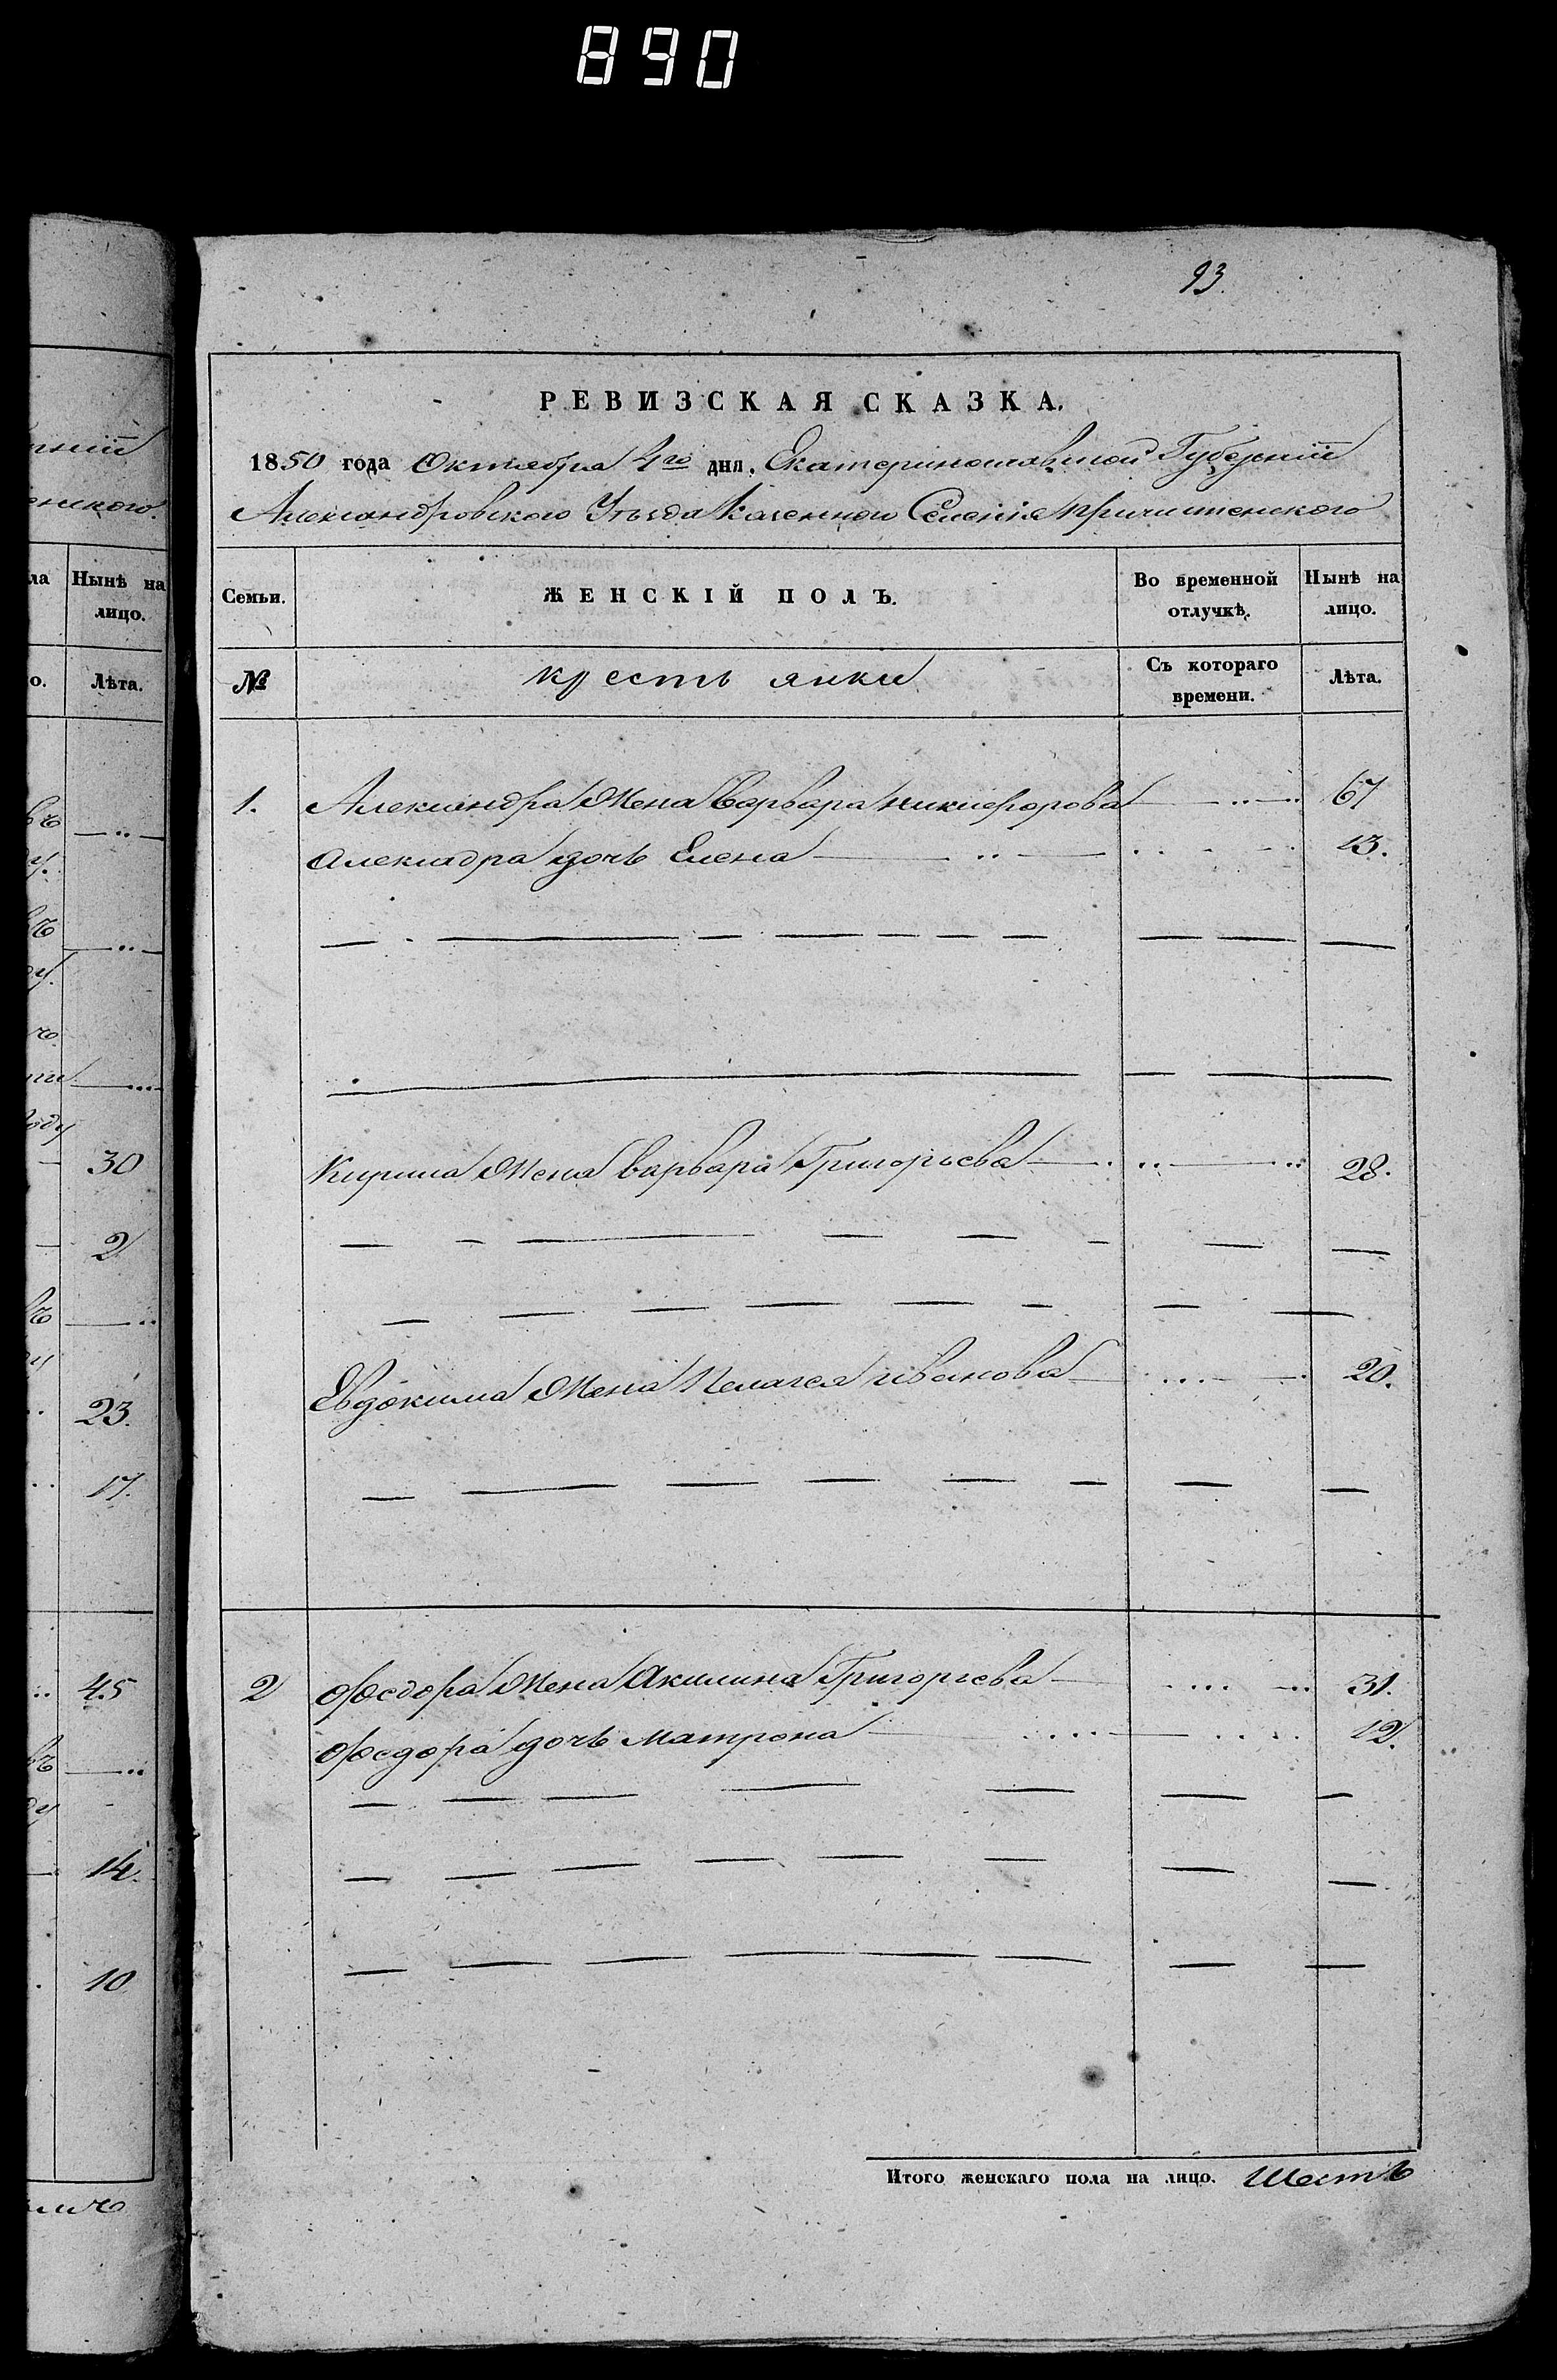 890
93.
РЕВИЗСКАЯ СКАЗКА.
1850 года Октября 4го дня. Екатеринославской Губернии
Александровского Уезда Казенного Селения Причистенского
Семьи. ЖЕНСКІЙ ПОЛЪ. Во временной отлучкѣ. Нынѣ на лицо.
№ крестьянки Съ котораго времени. Лѣта.
1. Александра Жена Варвара Никифорова 67
Алекнадра дочь Елена 13.
Кирила Жена варвара Григорьева 28.
Евдокима Жена Пелагея иванова 20.
2 Федора Жена Акилина Григорьева 31.
Федора дочь Матрона 12.
Итого женскаго пола на лицо. Шесть
Нынѣ на
лицо.
Лѣта.
30
2
23.
17.
45
14.
10